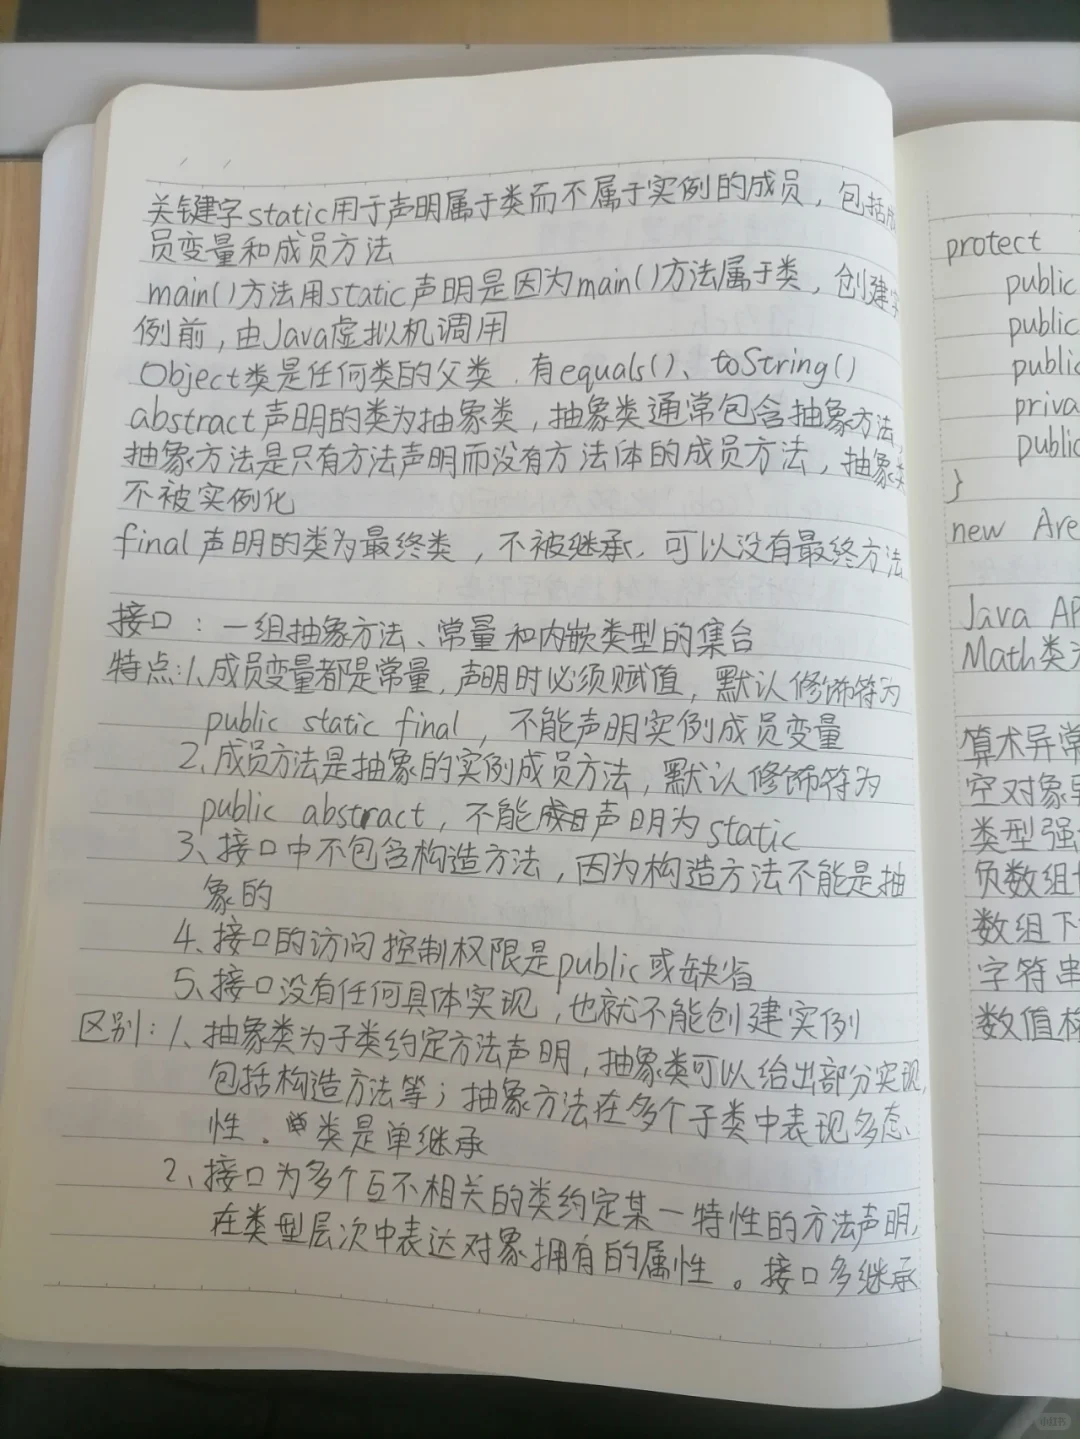 关键字static用于声明属于类而不属于实例的成员，包括成
员变量和成员方法
main()方法用static声明是因为main()方法属于类，创建
例前，由Java虚拟机调用
Object类是任何类的父类，有equals()、toString()
abstract声明的类为抽象类，抽象类通常包含抽象方法，
抽象方法是只有方法声明而没有方法体的成员方法，抽象类
不被实例化
final声明的类为最终类，不被继承，可以没有最终方法
接口：一组抽象方法、常量和内嵌类型的集合
特点：1、成员变量都是常量，声明时必须赋值，默认修饰符为
public static final，不能声明实例成员变量
2、成员方法是抽象的实例成员方法，默认修饰符为
public abstract，不能声明为static
3、接口中不包含构造方法，因为构造方法不能是抽
象的
4、接口的访问控制权限是public或缺省
5、接口没有任何具体实现，也就不能创建实例
区别：1、抽象类为子类约定方法声明，抽象类可以给出部分实现，
包括构造方法等；抽象方法在多个子类中表现多态
性。类是单继承
2、接口为多个互不相关的类约定某一特性的方法声明，
在类型层次中表达对象拥有的属性。接口多继承
protect
public
public
public
priva
public
}
new Are
Java AP
Math类
算术异常
空对象
类型强
负数组
数组下
字符串
数值格
小红书